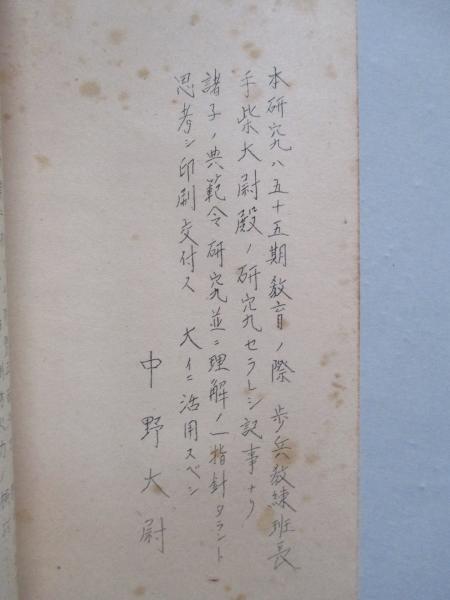 本研究ハ五十五期教育ノ際 歩兵教練班長
手柴大尉殿ノ研究セラレシ記事ナリ
諸子ノ典範令研究並ニ理解ノ一指針タラント
思考シ印刷交付ス 大イニ活用スベシ
中野大尉